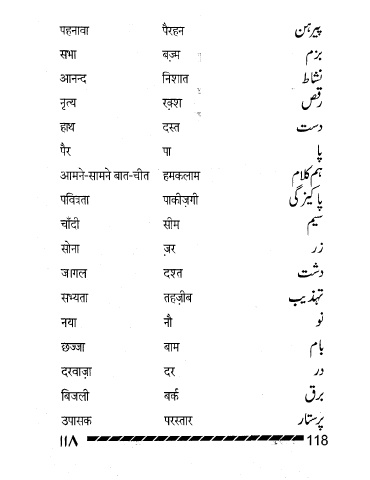 पहनावा पैरहन پیرہن
सभा बज़्म بزم
आनन्द निशात نشاط
नृत्य रक़्श رقص
हाथ दस्त دست
पैर पा پا
आमने-सामने बात-चीत हमकलाम ہم کلام
पवित्रता पाकीज़गी پاکیزگی
चाँदी सीम سیم
सोना ज़र زر
जागल दश्त دشت
सभ्यता तहज़ीब تہذیب
नया नौ نو
छज्जा बाम بام
दरवाज़ा दर در
बिजली बर्क برق
उपासक परस्तार پرستار
۱۱۸ 118